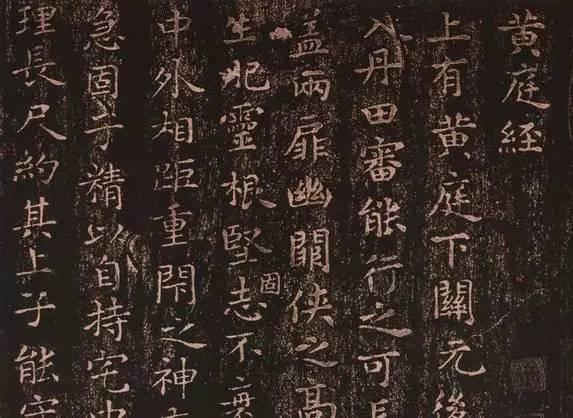 黄庭経
上有黄庭下關元後
入丹田審能行之可長
盖兩扉幽關侠之高
生祀靈根堅志不衰
固
中外相距重閇之神
急固子精以自持宅中
理長尺約其上子能守